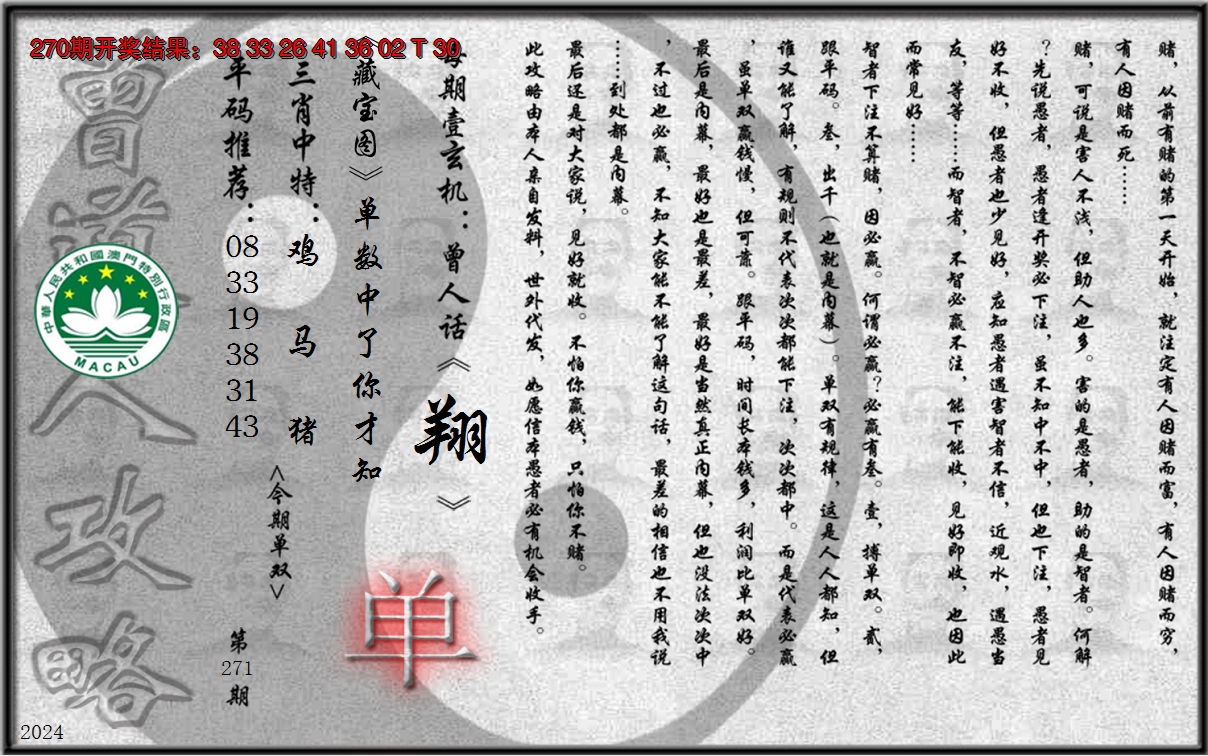 270期开奖结果：38 33 26 41 36 02 T 30
赌，从前有赌的第一天开始，就注定有人因赌而富，有人因赌而穷，
有人因赌而死……
赌，可说是害人不浅，但助人也多。害的是愚者，助的是智者。何解
？先说愚者，愚者逢开奖必下注，虽不知中不中，但也下注，愚者见
好不收，但愚者也少见好，应知愚者遇害智者不信，近观水，遇愚当
友，等等……而智者，不智必赢不注，能下能收，见好即收，也因此
而常见好……
智者下注不算赌，因必赢。何谓必赢？必赢有叁。壹，搏单双。贰，
跟平码。叁，出千（也就是内幕）。单双有规律，这是人人都知，但
谁又能了解，有规则不代表次次都能下注，次次都中。而是代表必赢
，虽单双赢钱慢，但可靠。跟平码，时间长本钱多，利润比单双好。
最后是内幕，最好也是最差，最好是当然真正内幕，但也没法次次中
，不过也必赢，不知大家能不能了解这句话，最差的相信也不用我说
……到处都是内幕。
最后还是对大家说，见好就收。不怕你赢钱，只怕你不赌。
此攻略由本人亲自发料，世外代发，如愿信本愚者必有机会收手。
每期壹玄机：曾人话《翔》
《藏宝图》单数中了你才知
单
三肖中特：鸡 马 猪
<今期单双>
平码推荐：
08
33
19
38
31
43
第
271
期
曾道人攻略
中華人民共和國澳門特別行政區
MACAU
2024